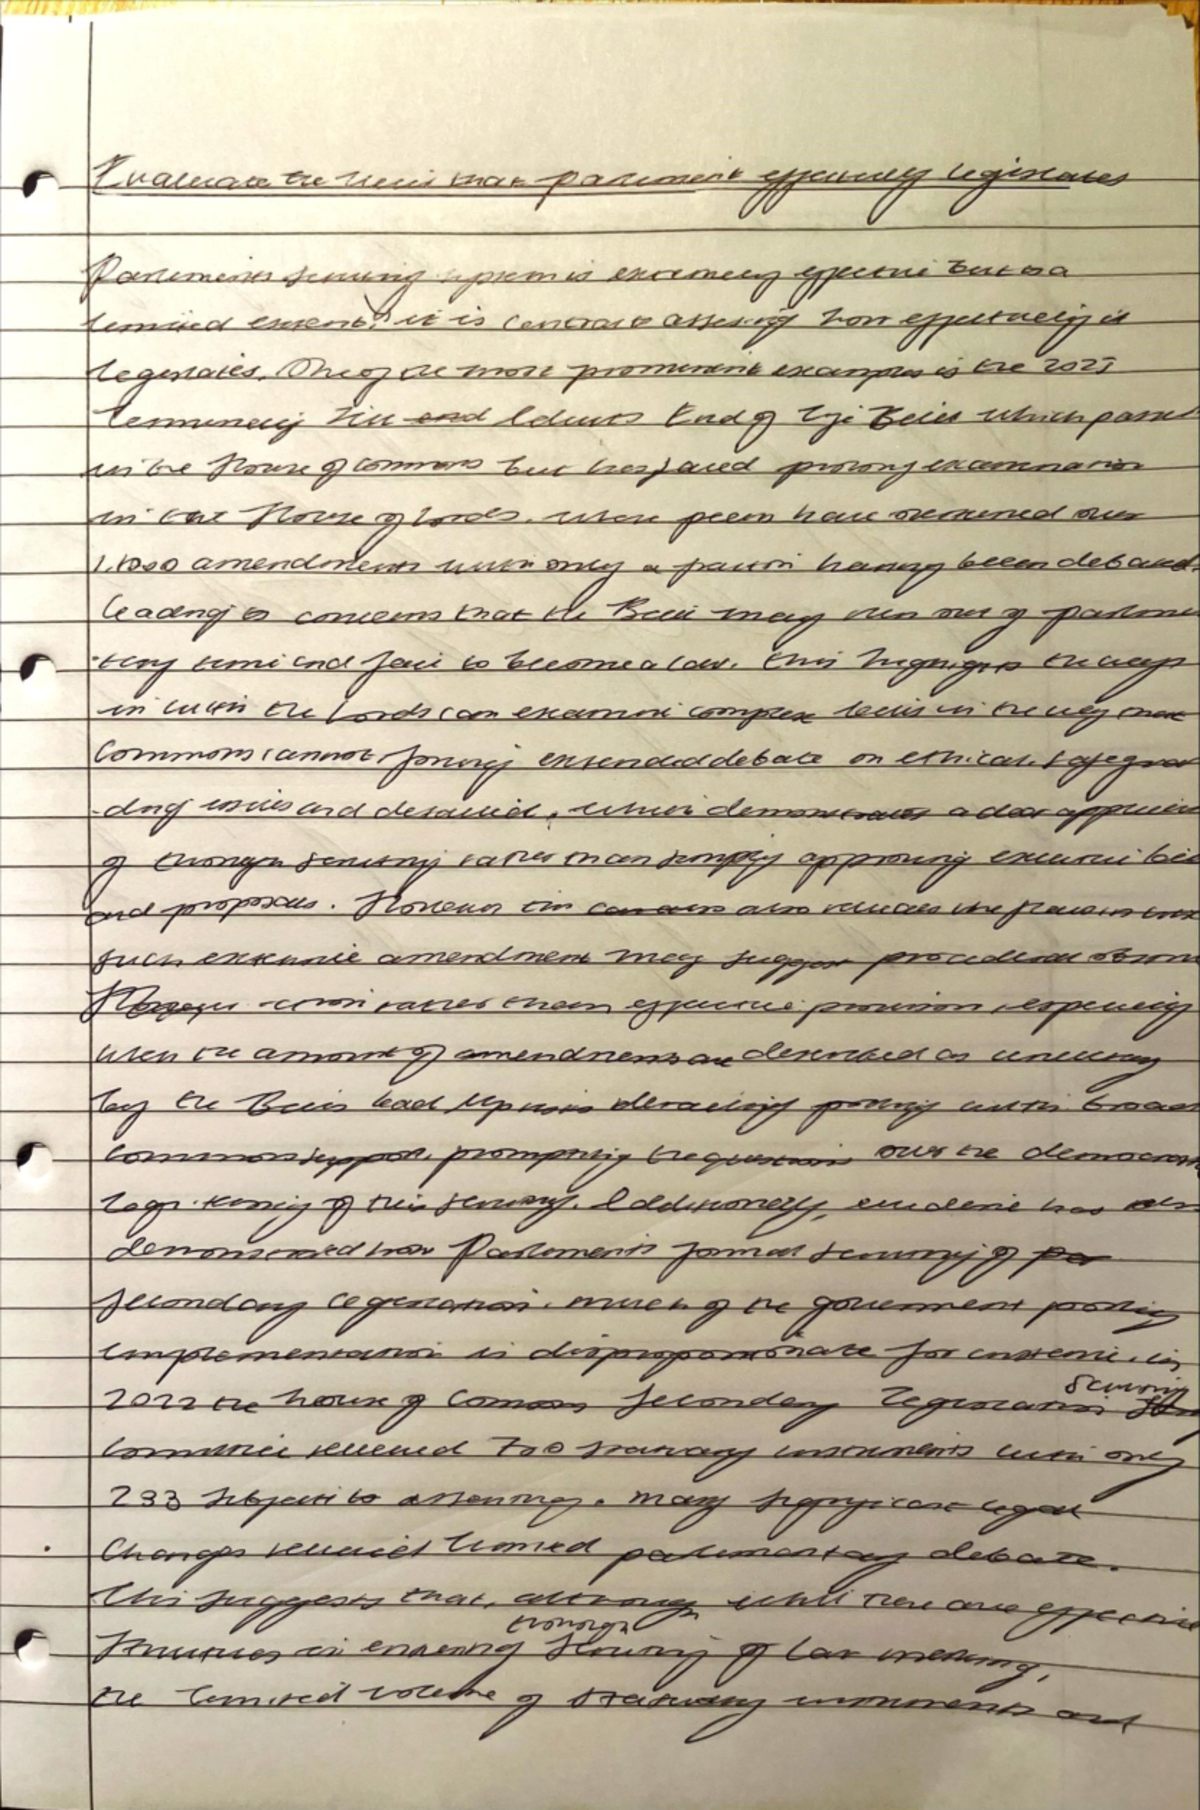 Evaluate the view that parliament effectively legislates
Parliments scrutiny system is extremely effective but to a
limited extent, it is central to assessing how effectively it
legislates. One of the most prominent examples is the 2025
Terminally Ill Adults End of Life Bill which passed
in the House of commons but has faced prolong examination
in the House of Lords. where peers have over
1,000 amendments with only a fraction having been debated.
leading to concerns that the Bill may run out of parlimen
tary time and fail to become a law. this highlights the ways
in which the Lords can examine complex bills in the way that
Commons cannot, forcing extended debate on ethical, safeguar
-ding issues and detailed, which demonstrates a clear
of through scrutiny rather than simply approving executive bill
and proposals. However this also
such extensive amendment may suggest procedural obstru
ction rather than effective provision, especially
when the amount of amendments are described as
by the Bills lead sponsors delaying policy with broad
commons support, prompting the questions over the democratic
legitimacy of this scrutiny. Additionally, evidence has also
demonstrated how Parliments formal scrutiny of
secondary legislation. much of the government policy
implementation is disproportionate for instance, in
2022 the house of Commons Secondary legislation scrutiny
committee reviewed 700 statutory instruments with only
233 subject to. many significant legal
changes received limited parlimentary debate.
This suggests that, although while there are effective
structures in ensuring thorough scrutiny of law making,
the limited volume of statutory instruments and